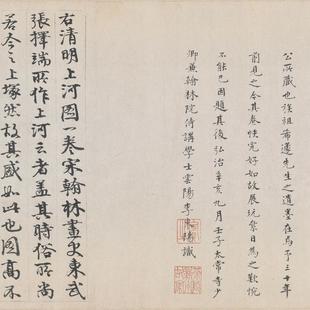 公所藏也族祖希蘧先生之遺墨在焉予三十年
前見之今其卷帙完好如故展玩累日為之歎惋
不能已因題其後弘治辛亥九月壬子太常寺少
卿兼翰林院侍講學士雲陽李東陽識
右清明上河圖一卷宋翰林畫史東武
張擇端所作上河云者蓋其時俗所尚
若今之上塚然故其盛如此也圖高不